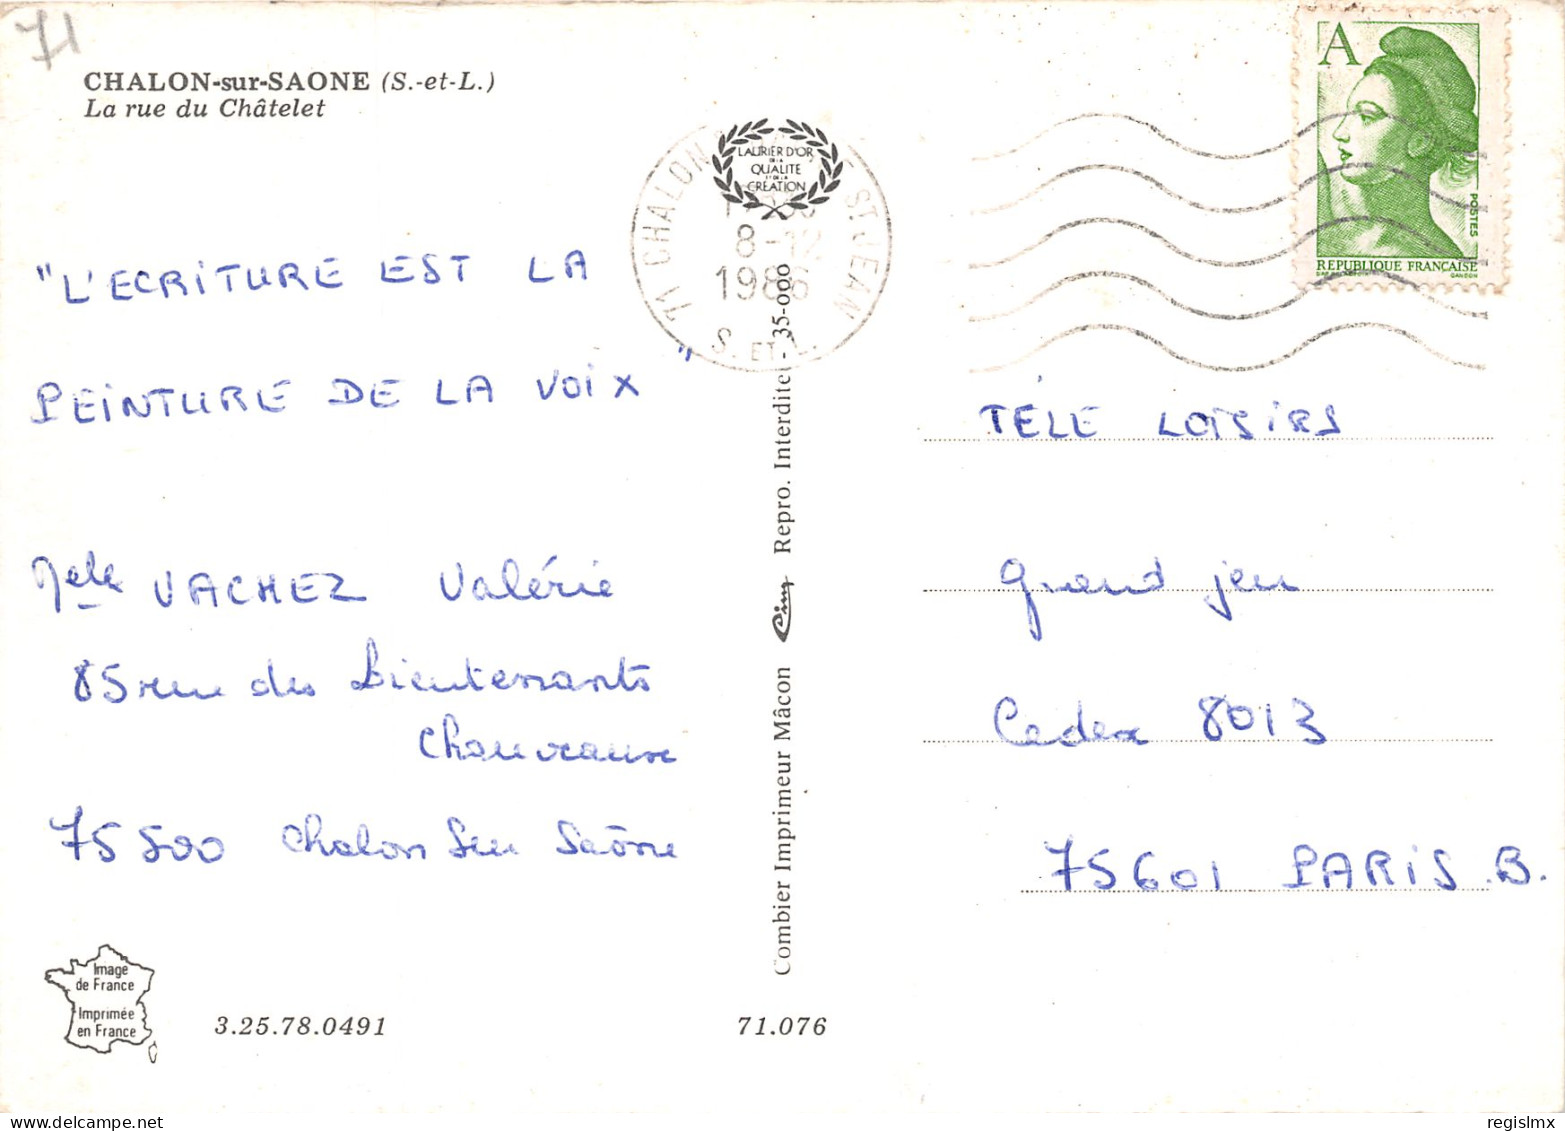 71
CHALON-sur-SAONE (S.-et-L.)
La rue du Châtelet
"L'ECRITURE EST LA
PEINTURE DE LA VOIX"
Melle VACHEZ Valérie
85 rue des Lieutenants
Chauveaux
75 500 Chalon Sur Saône
Image
de France
Imprimée
en France
3.25.78.0491
71.076
Combier Imprimeur Mâcon Cim Repro. Interdite - 35-000
LAURIER D'OR
DE LA
QUALITE
ET DE LA
CREATION
71 CHALON ST JEAN
8-12
1986
S. ET L.
A
POSTES
RÉPUBLIQUE FRANÇAISE
GANDON
TÉLÉ LOISIRS
Grand jeu
Cedex 8013
75601 PARIS B.
regislmx